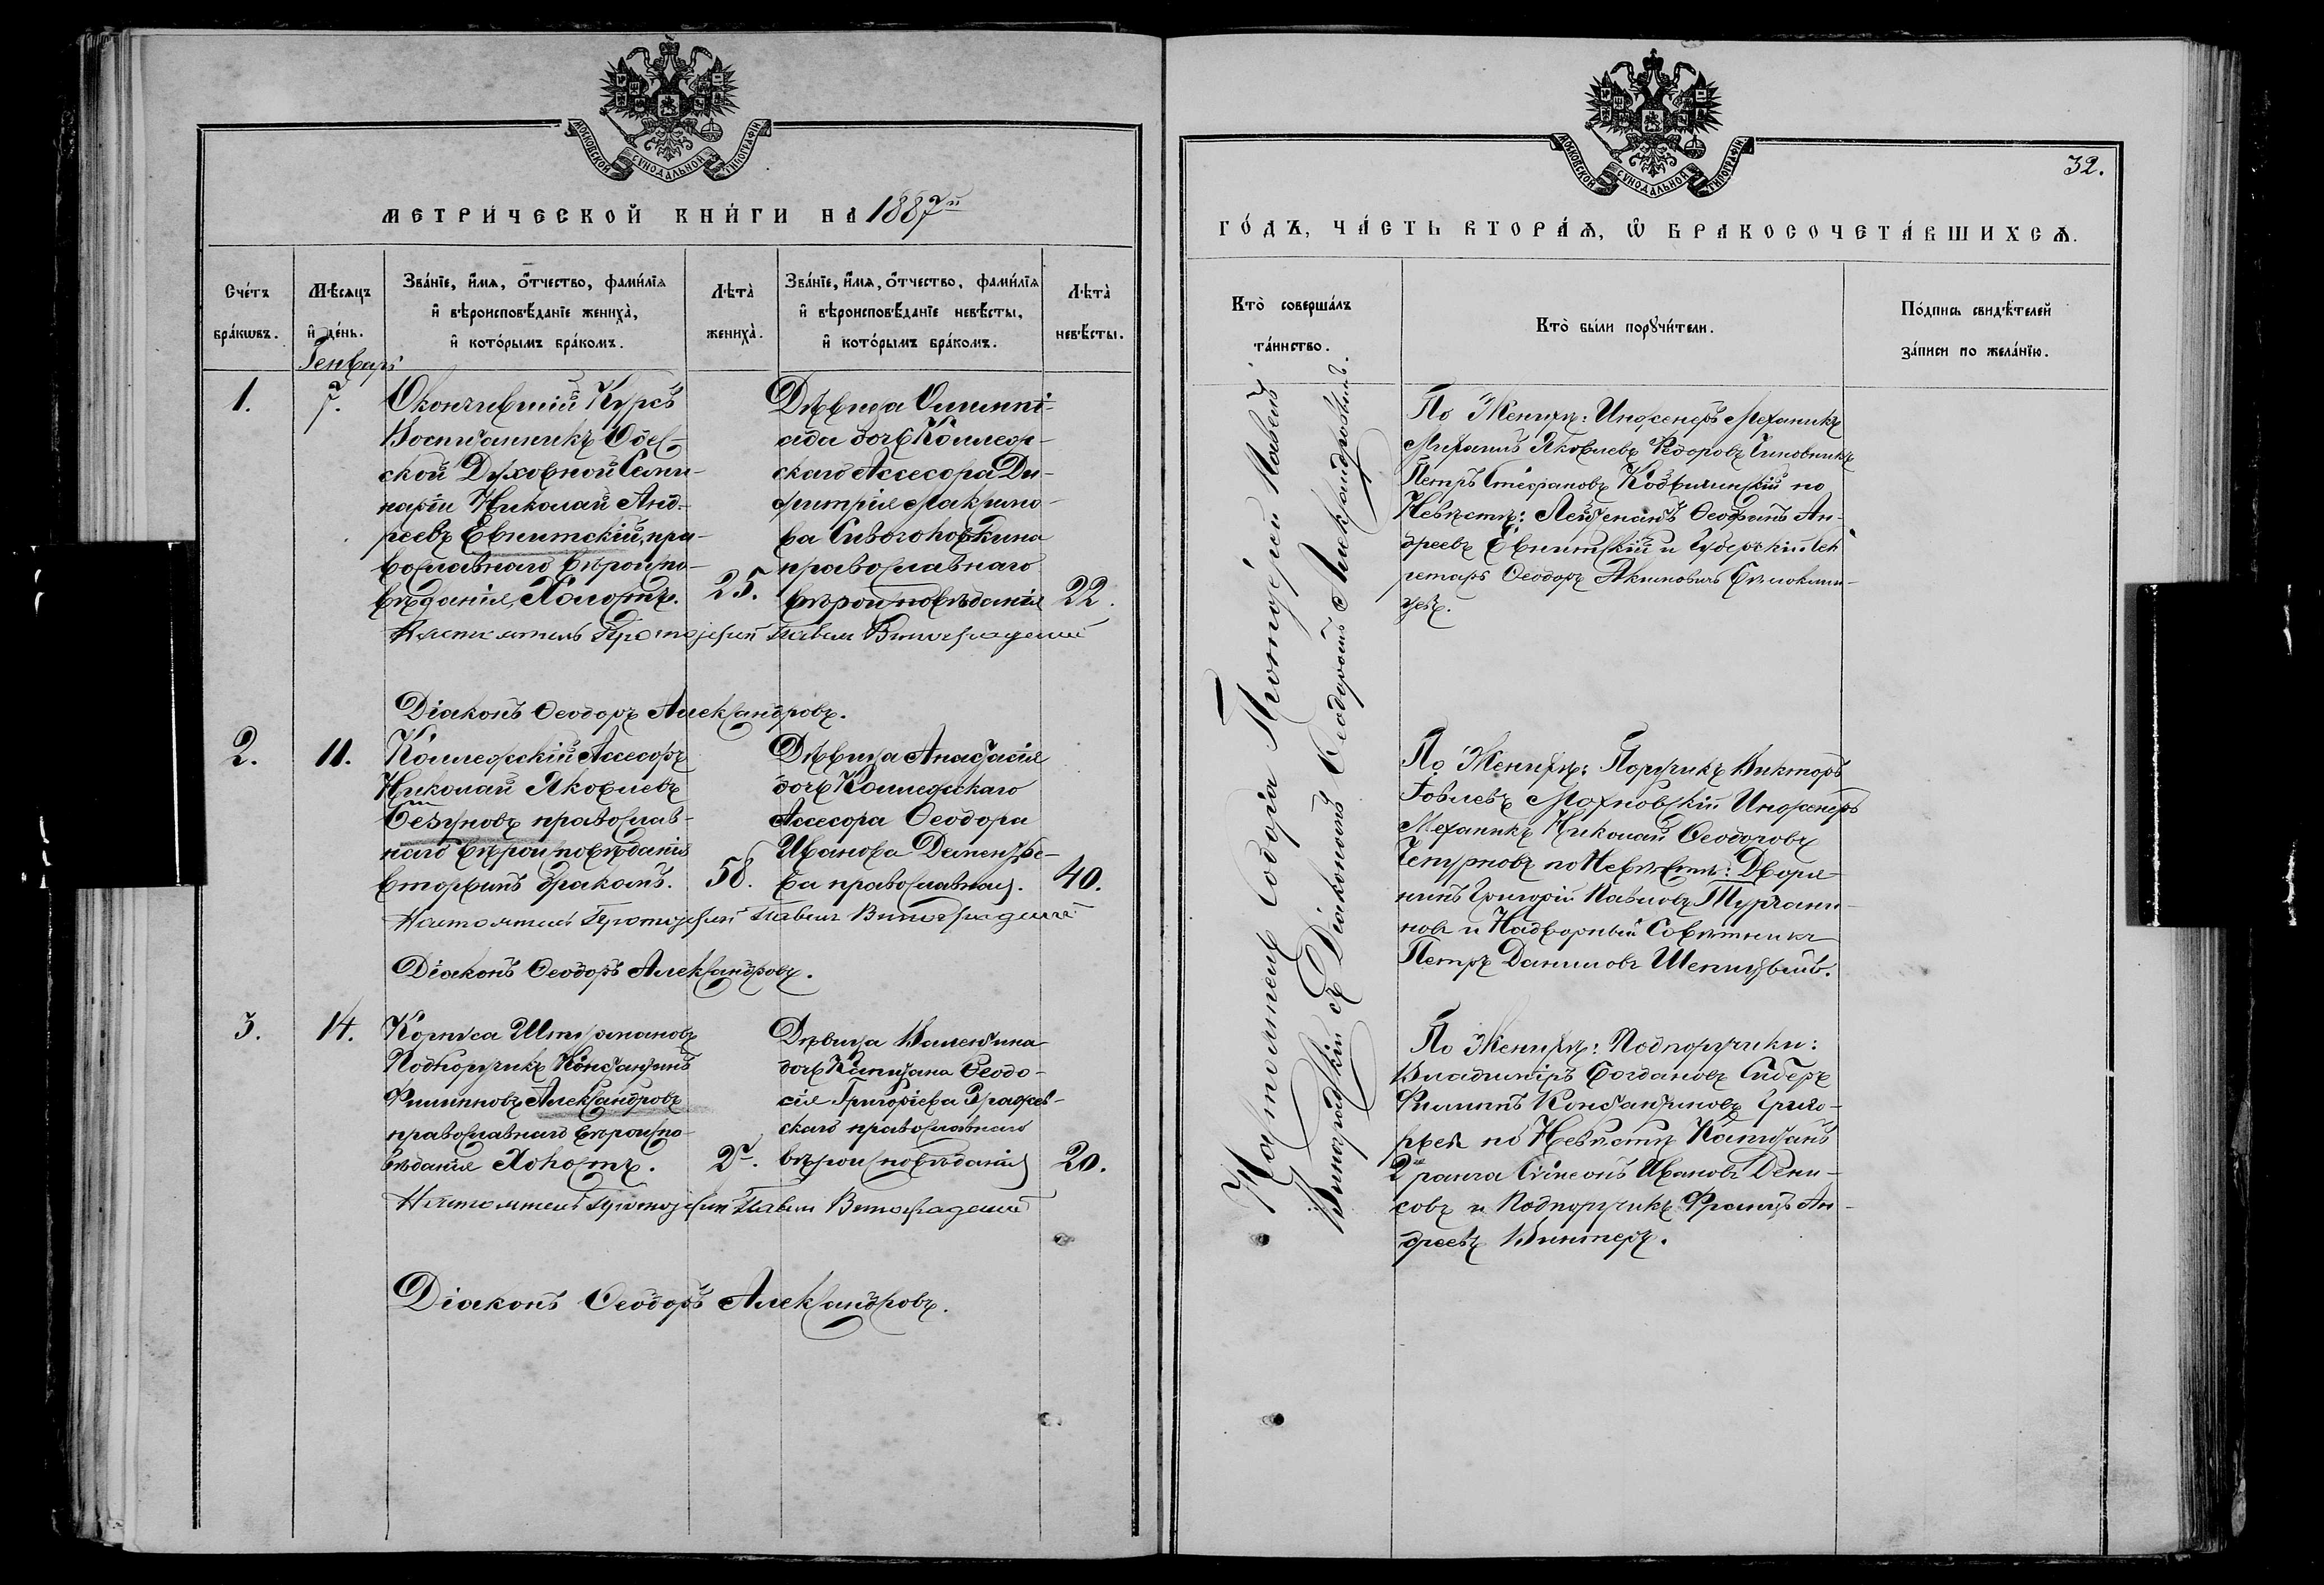 МОСКОВСКОЙ СѴНОДАЛЬНОЙ ТИПОГРАФІИ
МЕТРИ́ЧЕСКОЙ КНИ́ГИ НА 1887й
Сче́тъ бра́кωвъ.
Мѣ́сяцъ и҆ де́нь.
Зва́нїе, и҆́мѧ, ѻ҆́тчество, фами́лїѧ
и҆ вѣроисповѣ́данїе жениха̀,
и҆ кото́рымъ бра́комъ.
Лѣта̀ жениха̀.
Зва́нїе, и҆́мѧ, ѻ҆́тчество, фами́лїѧ
и҆ вѣроисповѣ́данїе невѣ́сты,
и҆ кото́рымъ бра́комъ.
Лѣта̀ невѣ́сты.
Генварь
1.
7.
Окончившій Курсъ
Воспитанникъ Одес-
ской Духовной Семи-
наріи Николай Анд-
реевъ Евнитскій, пра-
вославнаго вѣроиспо-
вѣданія, Холостъ.
25.
Дѣвица Олимпі-
ада дочь Коллеж-
скаго Ассесора Ди-
митрія
православнаго
вѣроисповѣданія
22.
Настоятель Протоіерей Павелъ Виноградскій
Діаконъ Ѳеодоръ Александровъ.
2.
11.
Коллежскій Ассесоръ
Николай Яковлевъ
православ-
наго вѣроисповѣданія
вторымъ бракомъ.
58.
Дѣвица Анастасія
дочь Коллежскаго
Ассесора Ѳеодора
Иванова
ва православная.
40.
Настоятель Протоіерей Павелъ Виноградскій
Діаконъ Ѳеодоръ Александровъ.
3.
14.
Корпуса Штурмановъ
Подпоручикъ Константинъ
Филипповъ Александровъ
православнаго вѣроиспо-
вѣданія Холостъ.
Дѣвица Валентина
дочь Капитана Ѳеодо-
сія Григоріева
скаго православнаго
вѣроисповѣданія
20.
Настоятель Протоіерей Павелъ Виноградскій
Діаконъ Ѳеодоръ Александровъ.
МОСКОВСКОЙ СѴНОДАЛЬНОЙ ТИПОГРАФІИ
32.
ГО́ДЪ, ЧА́СТЬ ВТОРА́Ѧ, Ѽ БРАКОСОЧЕТА́ВШИХСѦ.
Кто̀ соверша́лъ та́инство.
Кто̀ бы́ли порꙋчи́тели.
По́дпись свидѣ́телей
за́писи по жела́нїю.
Настоятель Собора Протоіерей Павелъ
Виноградскій съ Діакономъ Ѳеодоромъ Александровымъ.
По Женихѣ: Инженеръ Механикъ
Михаилъ Яковлевъ Ѳедоровъ Чиновникъ
Петръ Стефановъ по
Невѣстѣ: Лейтенантъ Ѳеофанъ Ан-
дреевъ Евнитскій и Губернскій Сек
ретарь Ѳеодоръ Акимовичъ
По Женихѣ: Поручикъ Викторъ
Іовлевъ Махновскій Инженеръ
Механикъ Николай Ѳеодоровъ
Чепурновъ по Невѣстѣ: Дворя-
нинъ Григорій Павловъ Турчани-
новъ и Надворный Совѣтникъ
Петръ Даниловъ
По Женихѣ: Подпоручики:
Владиміръ Богдановъ Сиберъ
Филиппъ Константиновъ Григо-
по Невѣстѣ Капитанъ
2 ранга Сѵмеонъ Ивановъ Дени-
совъ и Подпоручикъ Францъ Ан-
дреевъ Винтеръ.